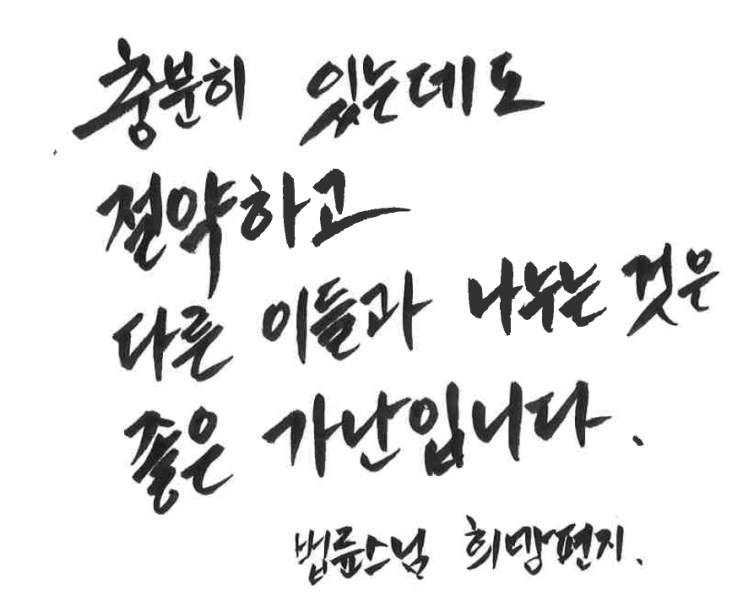 충분히 있는데도
절약하고
다른 이들과 나누는 것은
좋은 가난입니다.
법륜스님 희망편지.